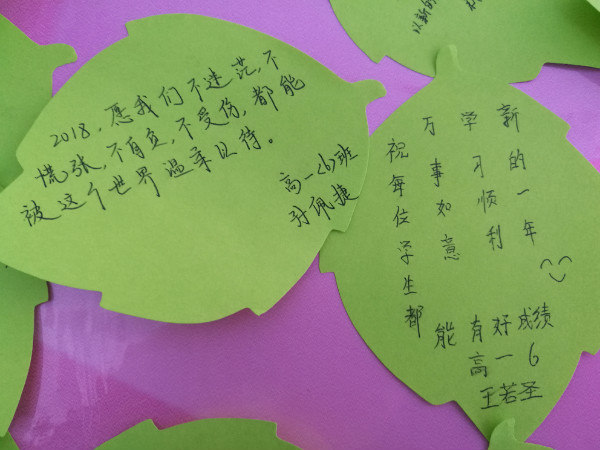 2018，愿我们不迷茫，不
慌张，不自负，不受伤，都能
被这个世界温柔以待。
高一(6)班
孙佩捷
新的一年
学习顺利
万事如意
祝每位学生都
能有好成绩
高一6
王若圣